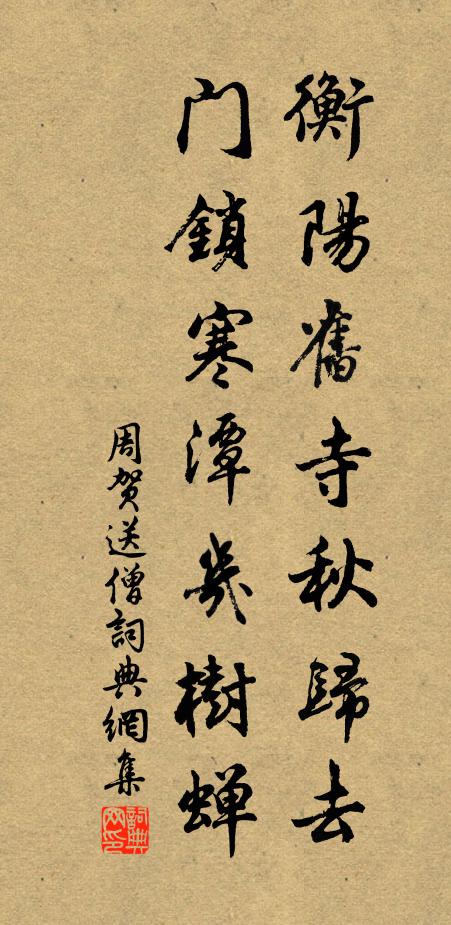 衡陽舊寺秋歸去
门鎖寒潭幾樹蝉
周贺送僧詞典網集
詞典网印